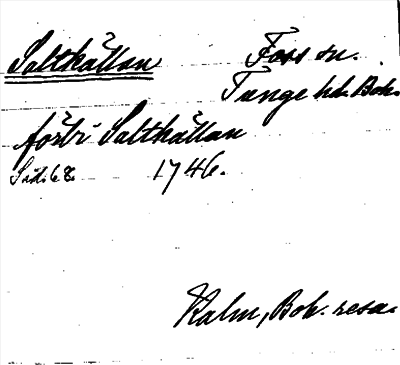 Saltkällan Foss sn.
Tunge hd. Boh.
förbi Saltkällan
Sid. 68. 1746.
Kalm, Boh. resa.